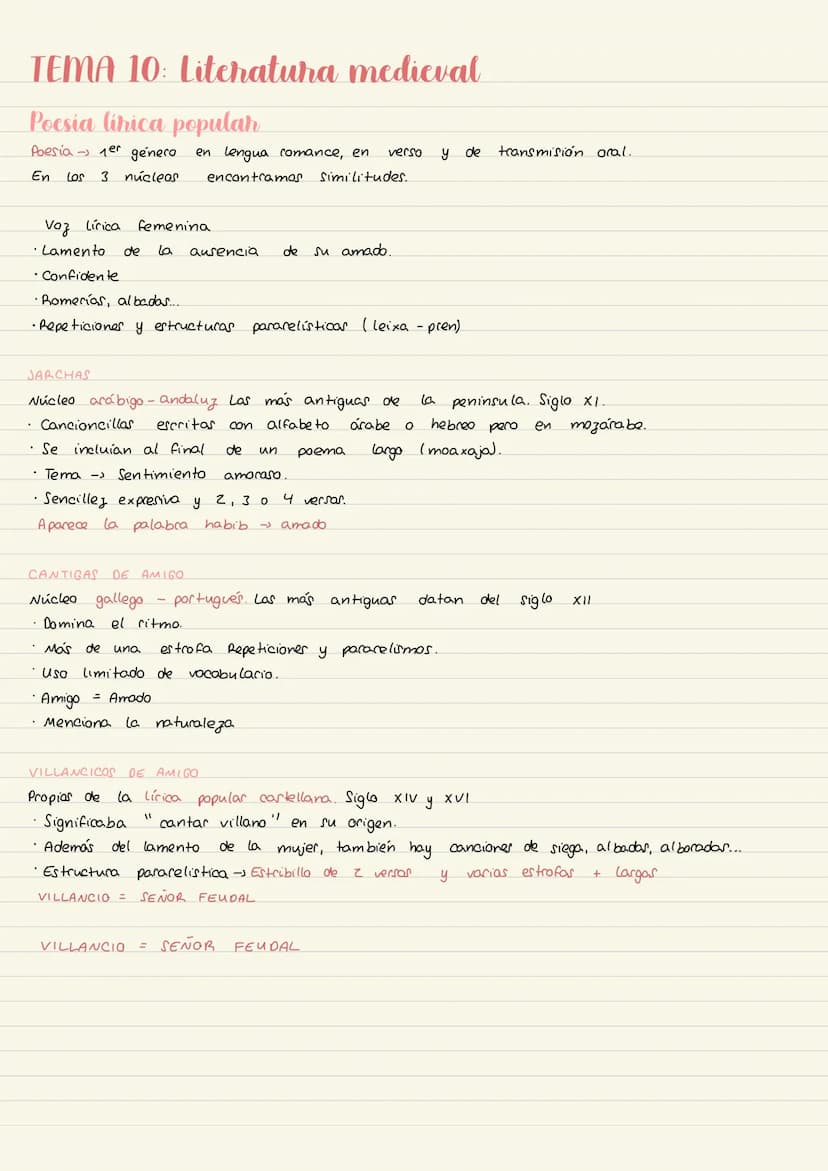 TEMA 10: Literatura medieval
Poesía lírica popular
Poesía → 1er género en lengua romance, en verso y de transmisión oral.
En los 3 núcleos encontramos similitudes.
Voz lírica femenina
· Lamento de la ausencia de su amado.
· Confidente
· Romerías, albadas...
· Repeticiones y estructuras pararelísticas (leixa - pren)
JARCHAS
Núcleo arábigo - andaluz Las más antiguas de la península. Siglo XI.
· Cancioncillas escritas con alfabeto árabe o hebreo pero en mozárabe.
· Se incluían al final de un poema largo (moaxaja).
· Tema → Sentimiento amoroso.
· Sencillez expresiva y 2, 3 o 4 versos.
Aparece la palabra habib → amado
CANTIGAS DE AMIGO
Núcleo gallego - portugués. Las más antiguas datan del siglo XII
· Domina el ritmo.
· Más de una estrofa Repeticiones y pararelismos.
· Uso limitado de vocabulario.
· Amigo = Amado
· Menciona la naturaleza
VILLANCICOS DE AMIGO
Propias de la lírica popular castellana. Siglo XIV y XVI
· Significaba "cantar villano" en su origen.
· Además del lamento de la mujer, también hay canciones de siega, albadas, alboradas...
· Estructura pararelística → Estribillo de 2 versos y varias estrofas + largas
VILLANCIO = SEÑOR FEUDAL
VILLANCIO = SEÑOR FEUDAL